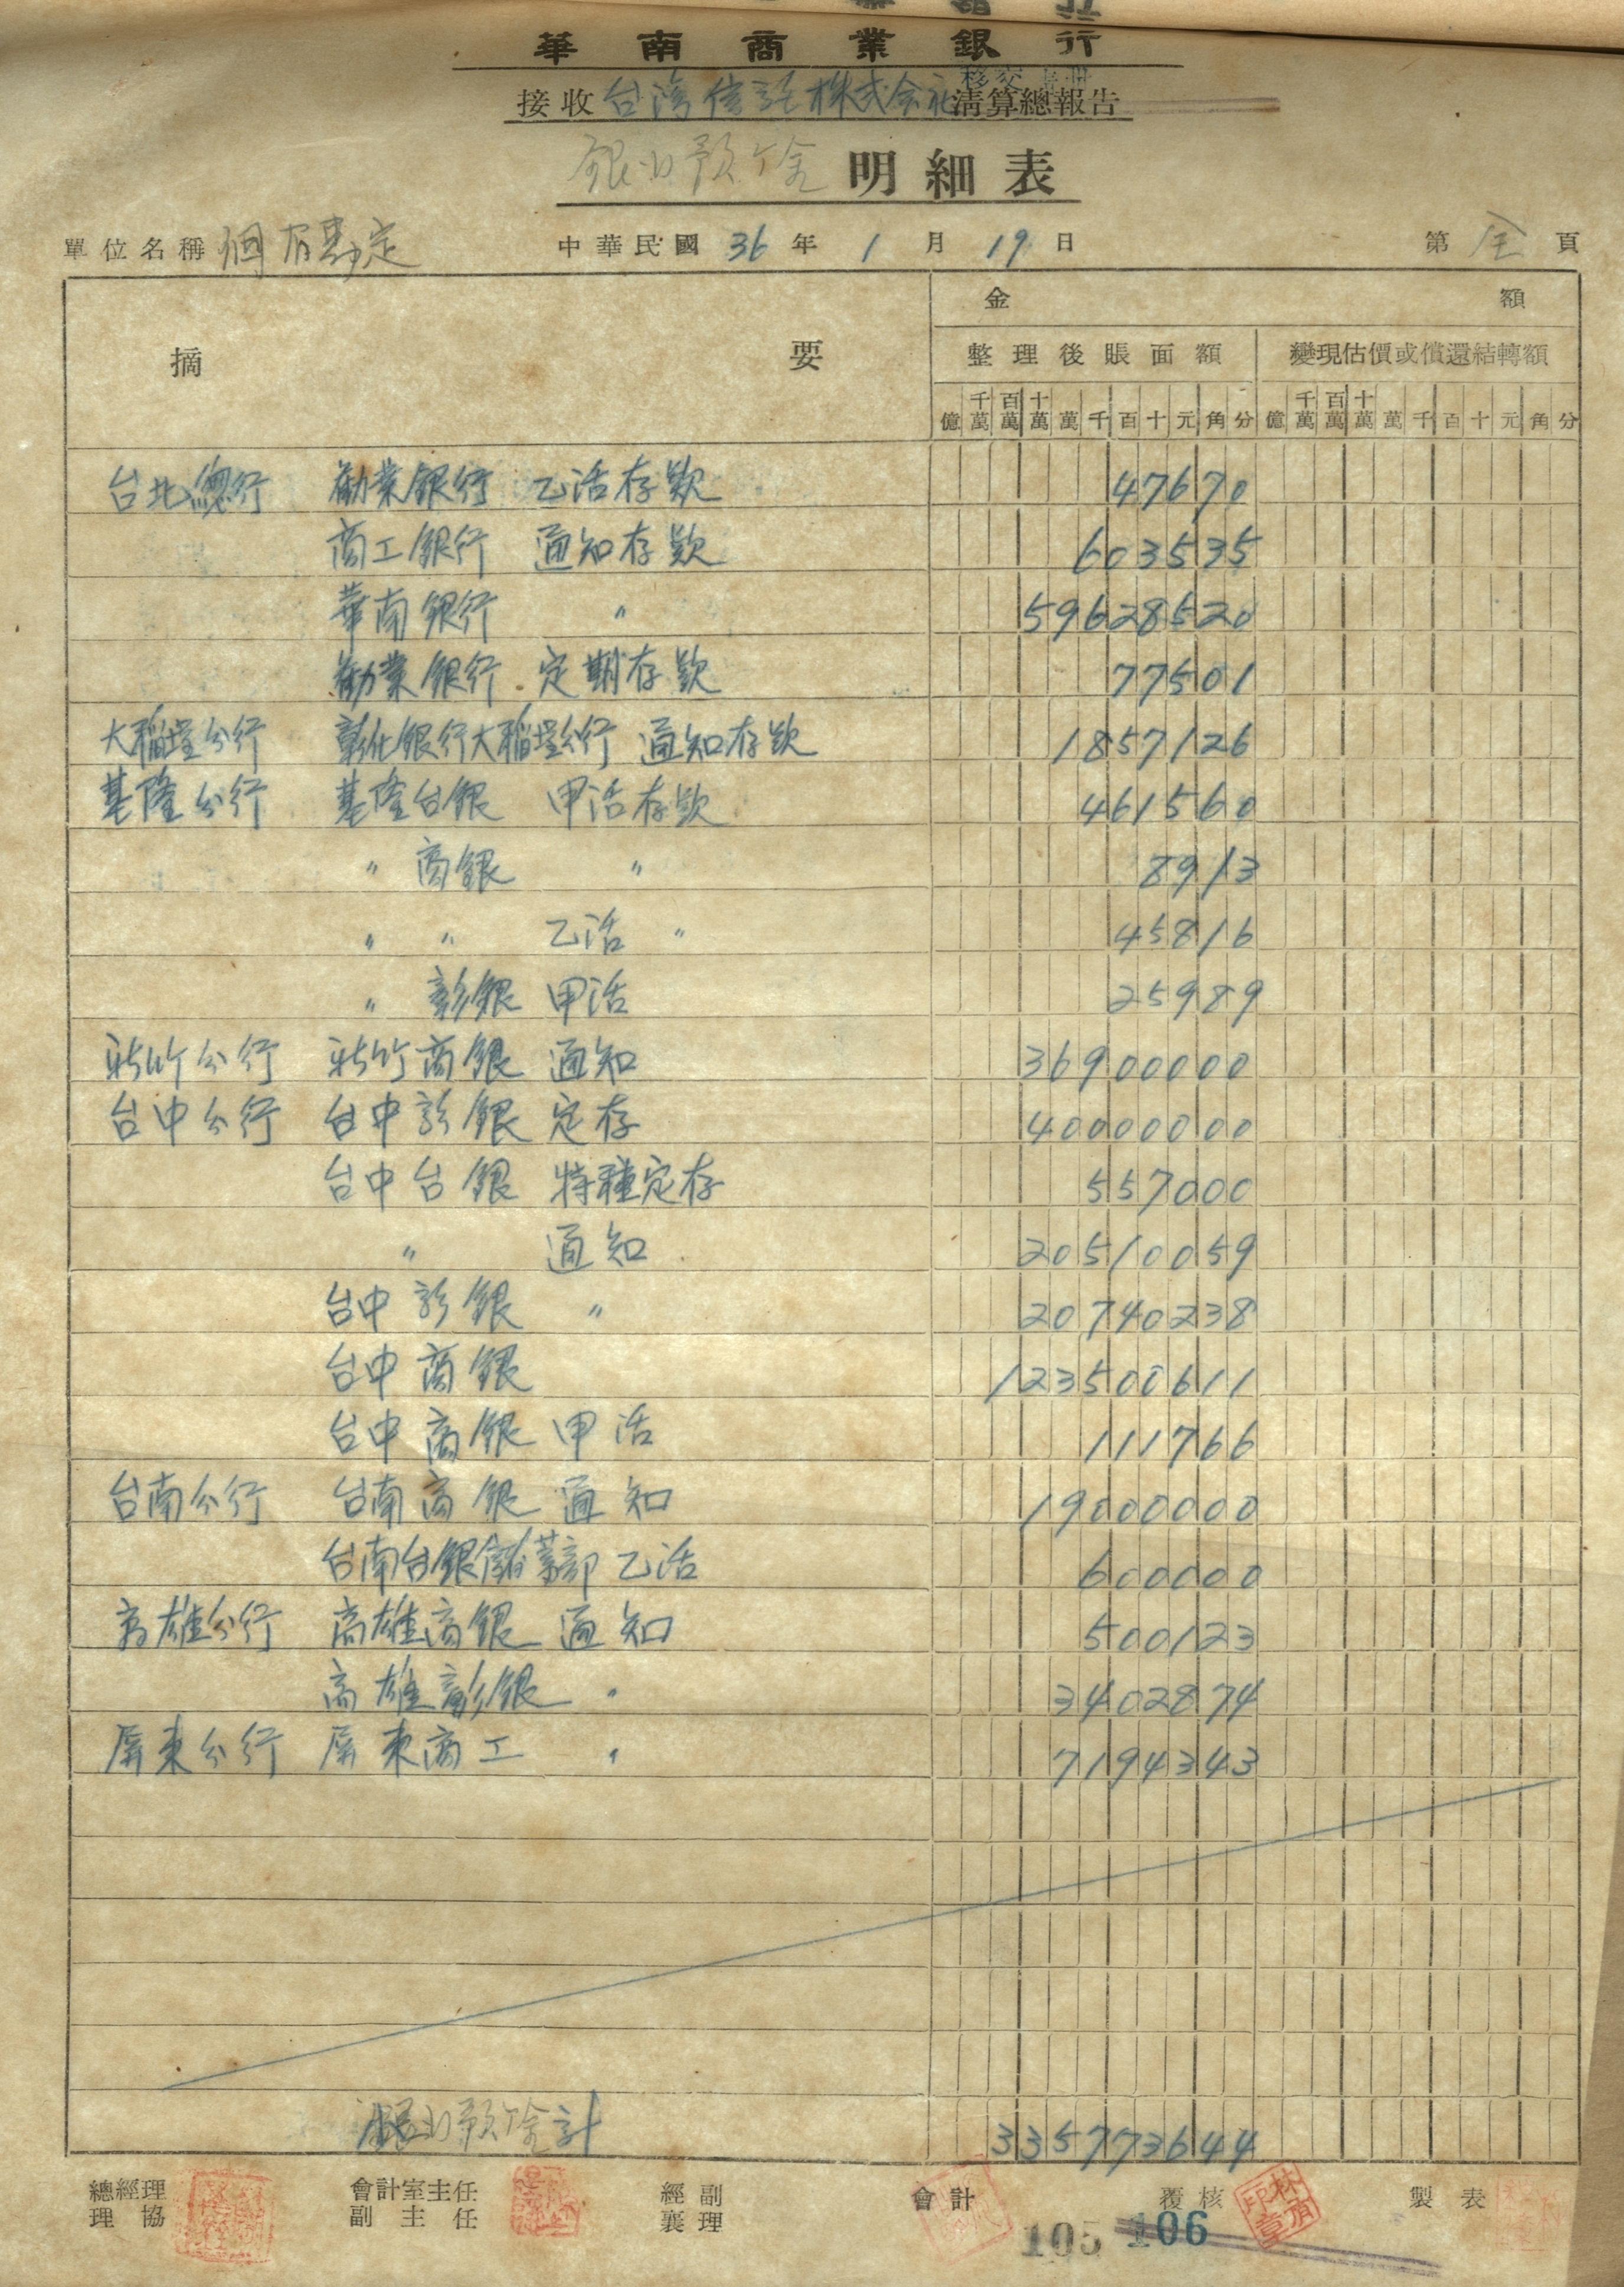 華南商業銀行
接收台灣信託株式会社清算總報告
移交
明細表
單位名稱 固有勘定 中華民國36年1月19日 第全頁
摘要 金額
整理後賬面額 變現估價或償還結轉額
億 千萬 百萬 十萬 萬 千 百 十 元 角 分 億 千萬 百萬 十萬 萬 千 百 十 元 角 分
台北總行 勧業銀行 乙活存款 47670
商工銀行 通知存款 603535
華南銀行 〃 59628520
勧業銀行 定期存款 77501
大稲埕分行 彰化銀行大稲埕分行 通知存款 1857126
基隆分行 基隆台銀 甲活存款 461560
〃 商銀 〃 8913
〃 〃 乙活 〃 45816
〃 彰銀 甲活 25989
新竹分行 新竹商銀 通知 36900000
台中分行 台中彰銀 定存 40000000
台中台銀 特種定存 557000
〃 通知 20510059
台中彰銀 〃 20740238
台中商銀 123500611
台中商銀 甲活 111766
台南分行 台南商銀 通知 19000000
台南台銀儲蓄部 乙活 600000
高雄分行 高雄商銀 通知 500123
高雄彰銀 〃 3402874
屏東分行 屏東商工 〃 7194343
計 335773644
總經理 會計室主任 經副 會計 覆核 製表
協理 副主任 襄理
105 106